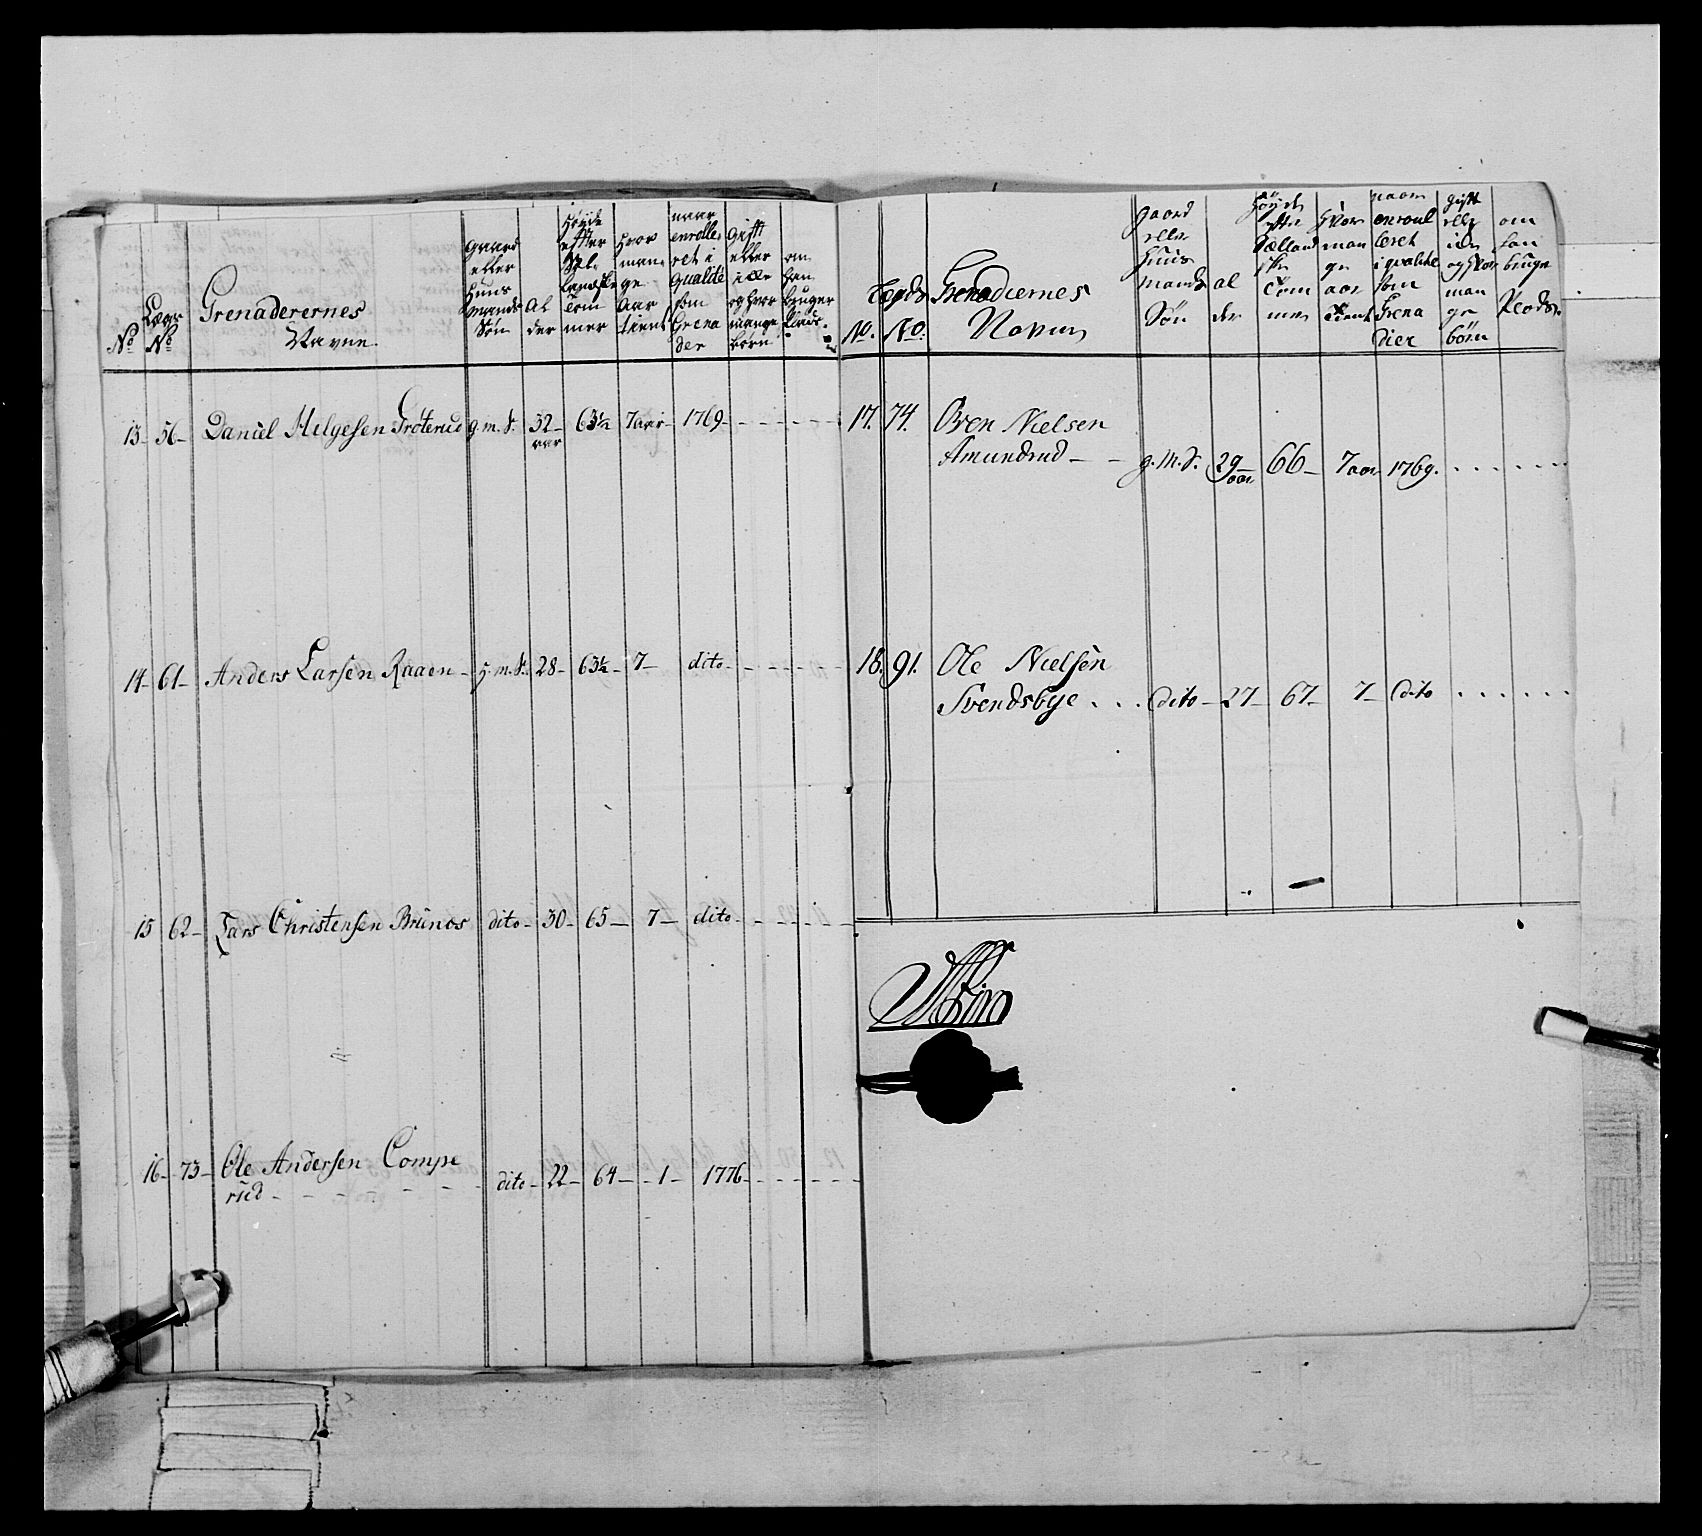 No
Lægs No
Grenaderernes
Navne
gaard
eller
Huus
mands
Søn
Al
der
Høyde
effter
Siel
landske
Tom
mer
hvor
man
ge
Aar
tient
naar
enrolle
ret i
qualité
som
Grena
der
gifft
eller
ille
og hvor
mange
børn
om
han
bruger
Plads
13 - 56 - Daniel Helgesen Grøterud g. m. S. 32 - 63½ 7 aar - 1769 - - - - - -
aar
14 - 61 - Anders Larsen Raaen - g. m. S. 28 - 63½ - 7 - dito - - - - - -
15 62 - Lars Christensen Brunæs dito - 30 - 65 - 7 - dito - - - - - -
16 - 73 - Ole Andersen Compe
rud - - - - - - dito - 22 - 64 - 1 - 1776 - - - - - -
No.
Lægds
No.
Grenadiernes
Navne
gaard
eller
Huus
mands
Søn
al
der
Høyde
efter
Sælland
ske
Tom
mer
hvor
man
ge
aar
tient
naar
enroul
leret
i qvalité
som
Grena
dier
gift
eller
og hvor
man
ge
børn
om
han
bruger
Plads.
17. 74. Oven Nielsen
Amundrud - - g. M. S. 29 - 66 - 7 aar 1769. . . . . . .
aar
18. 91. Ole Nielsen
Svendsbye . . . dito - 27 - 67 - 7 - dito . . . . . .